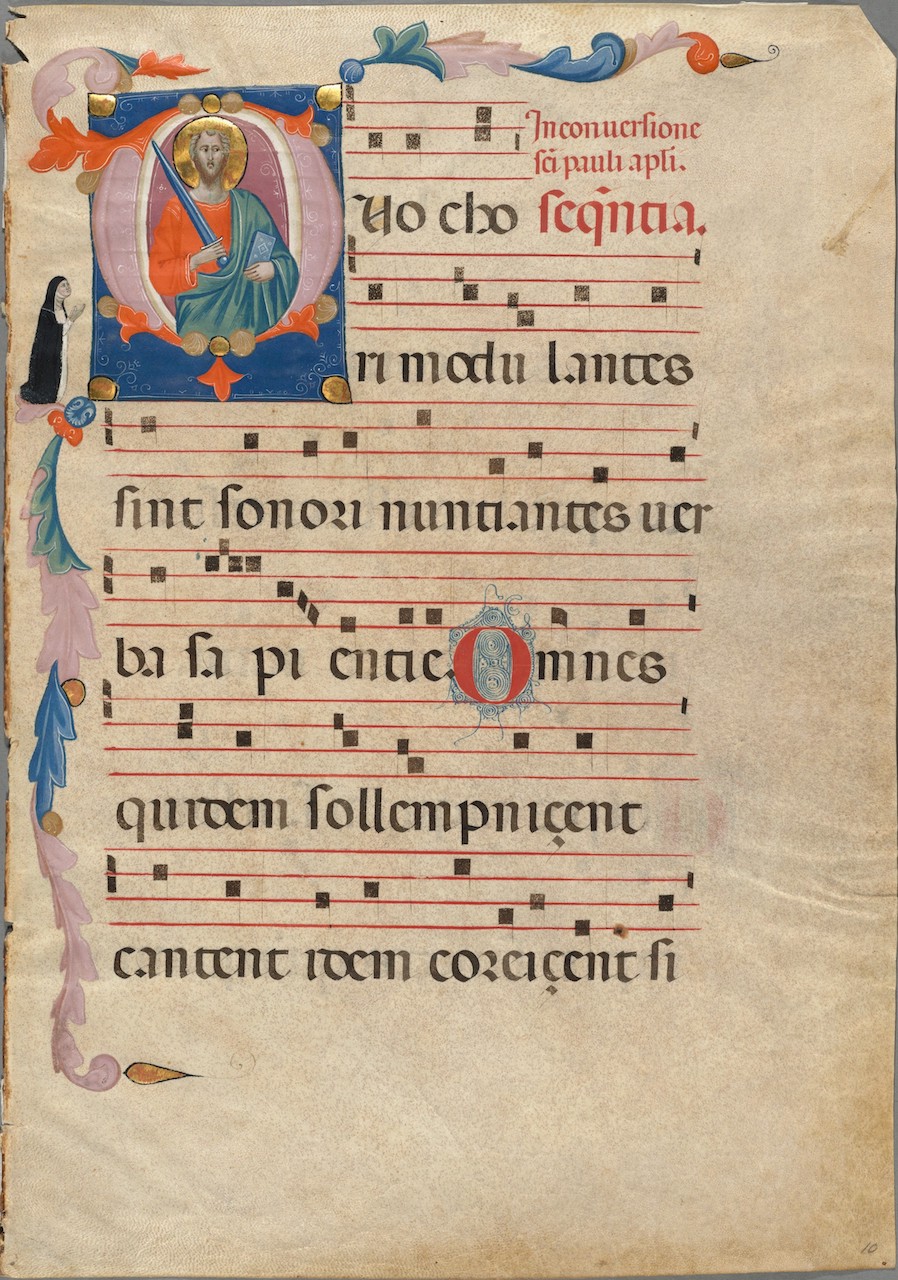 In conuersione
sc̃i pauli apl̃i.
DUo cho seq̃ntia.
ri modu lantes
sint sonori nuntiantes uer
ba sa pi entie. Omnes
quidem sollempniçent
cantent idem coreiçent si
10